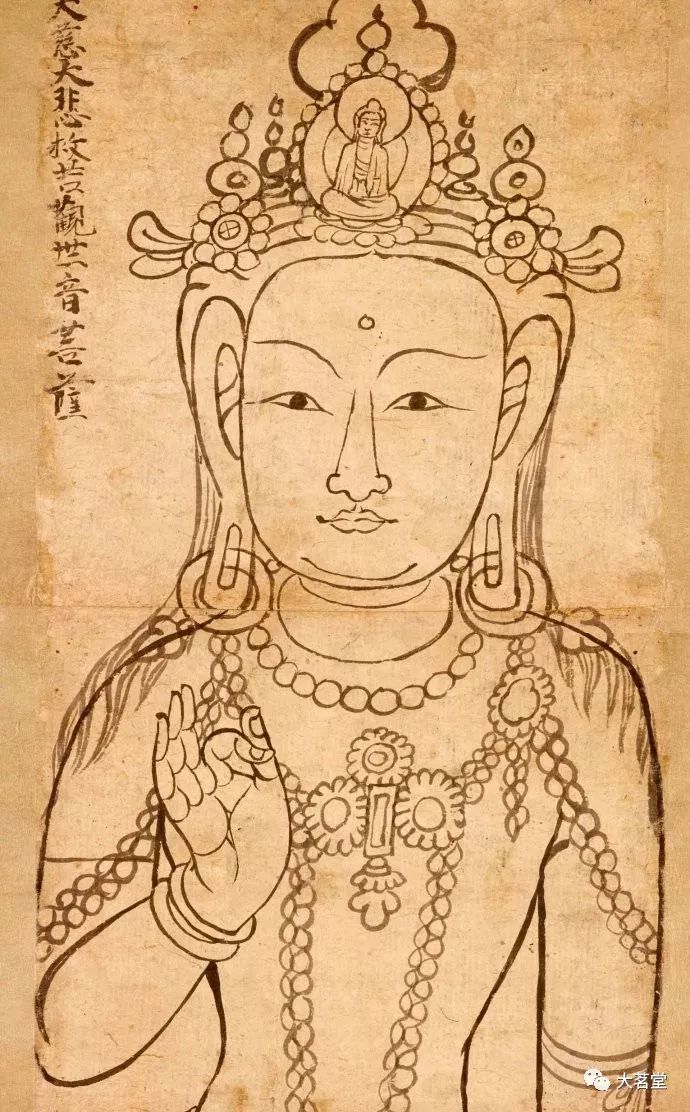 大慈大悲救苦觀世音菩薩
大茗堂